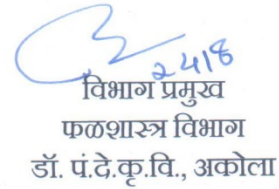 2418
विभाग प्रमुख
फळशास्त्र विभाग
डॉ. पं.दे.कृ.वि., अकोला